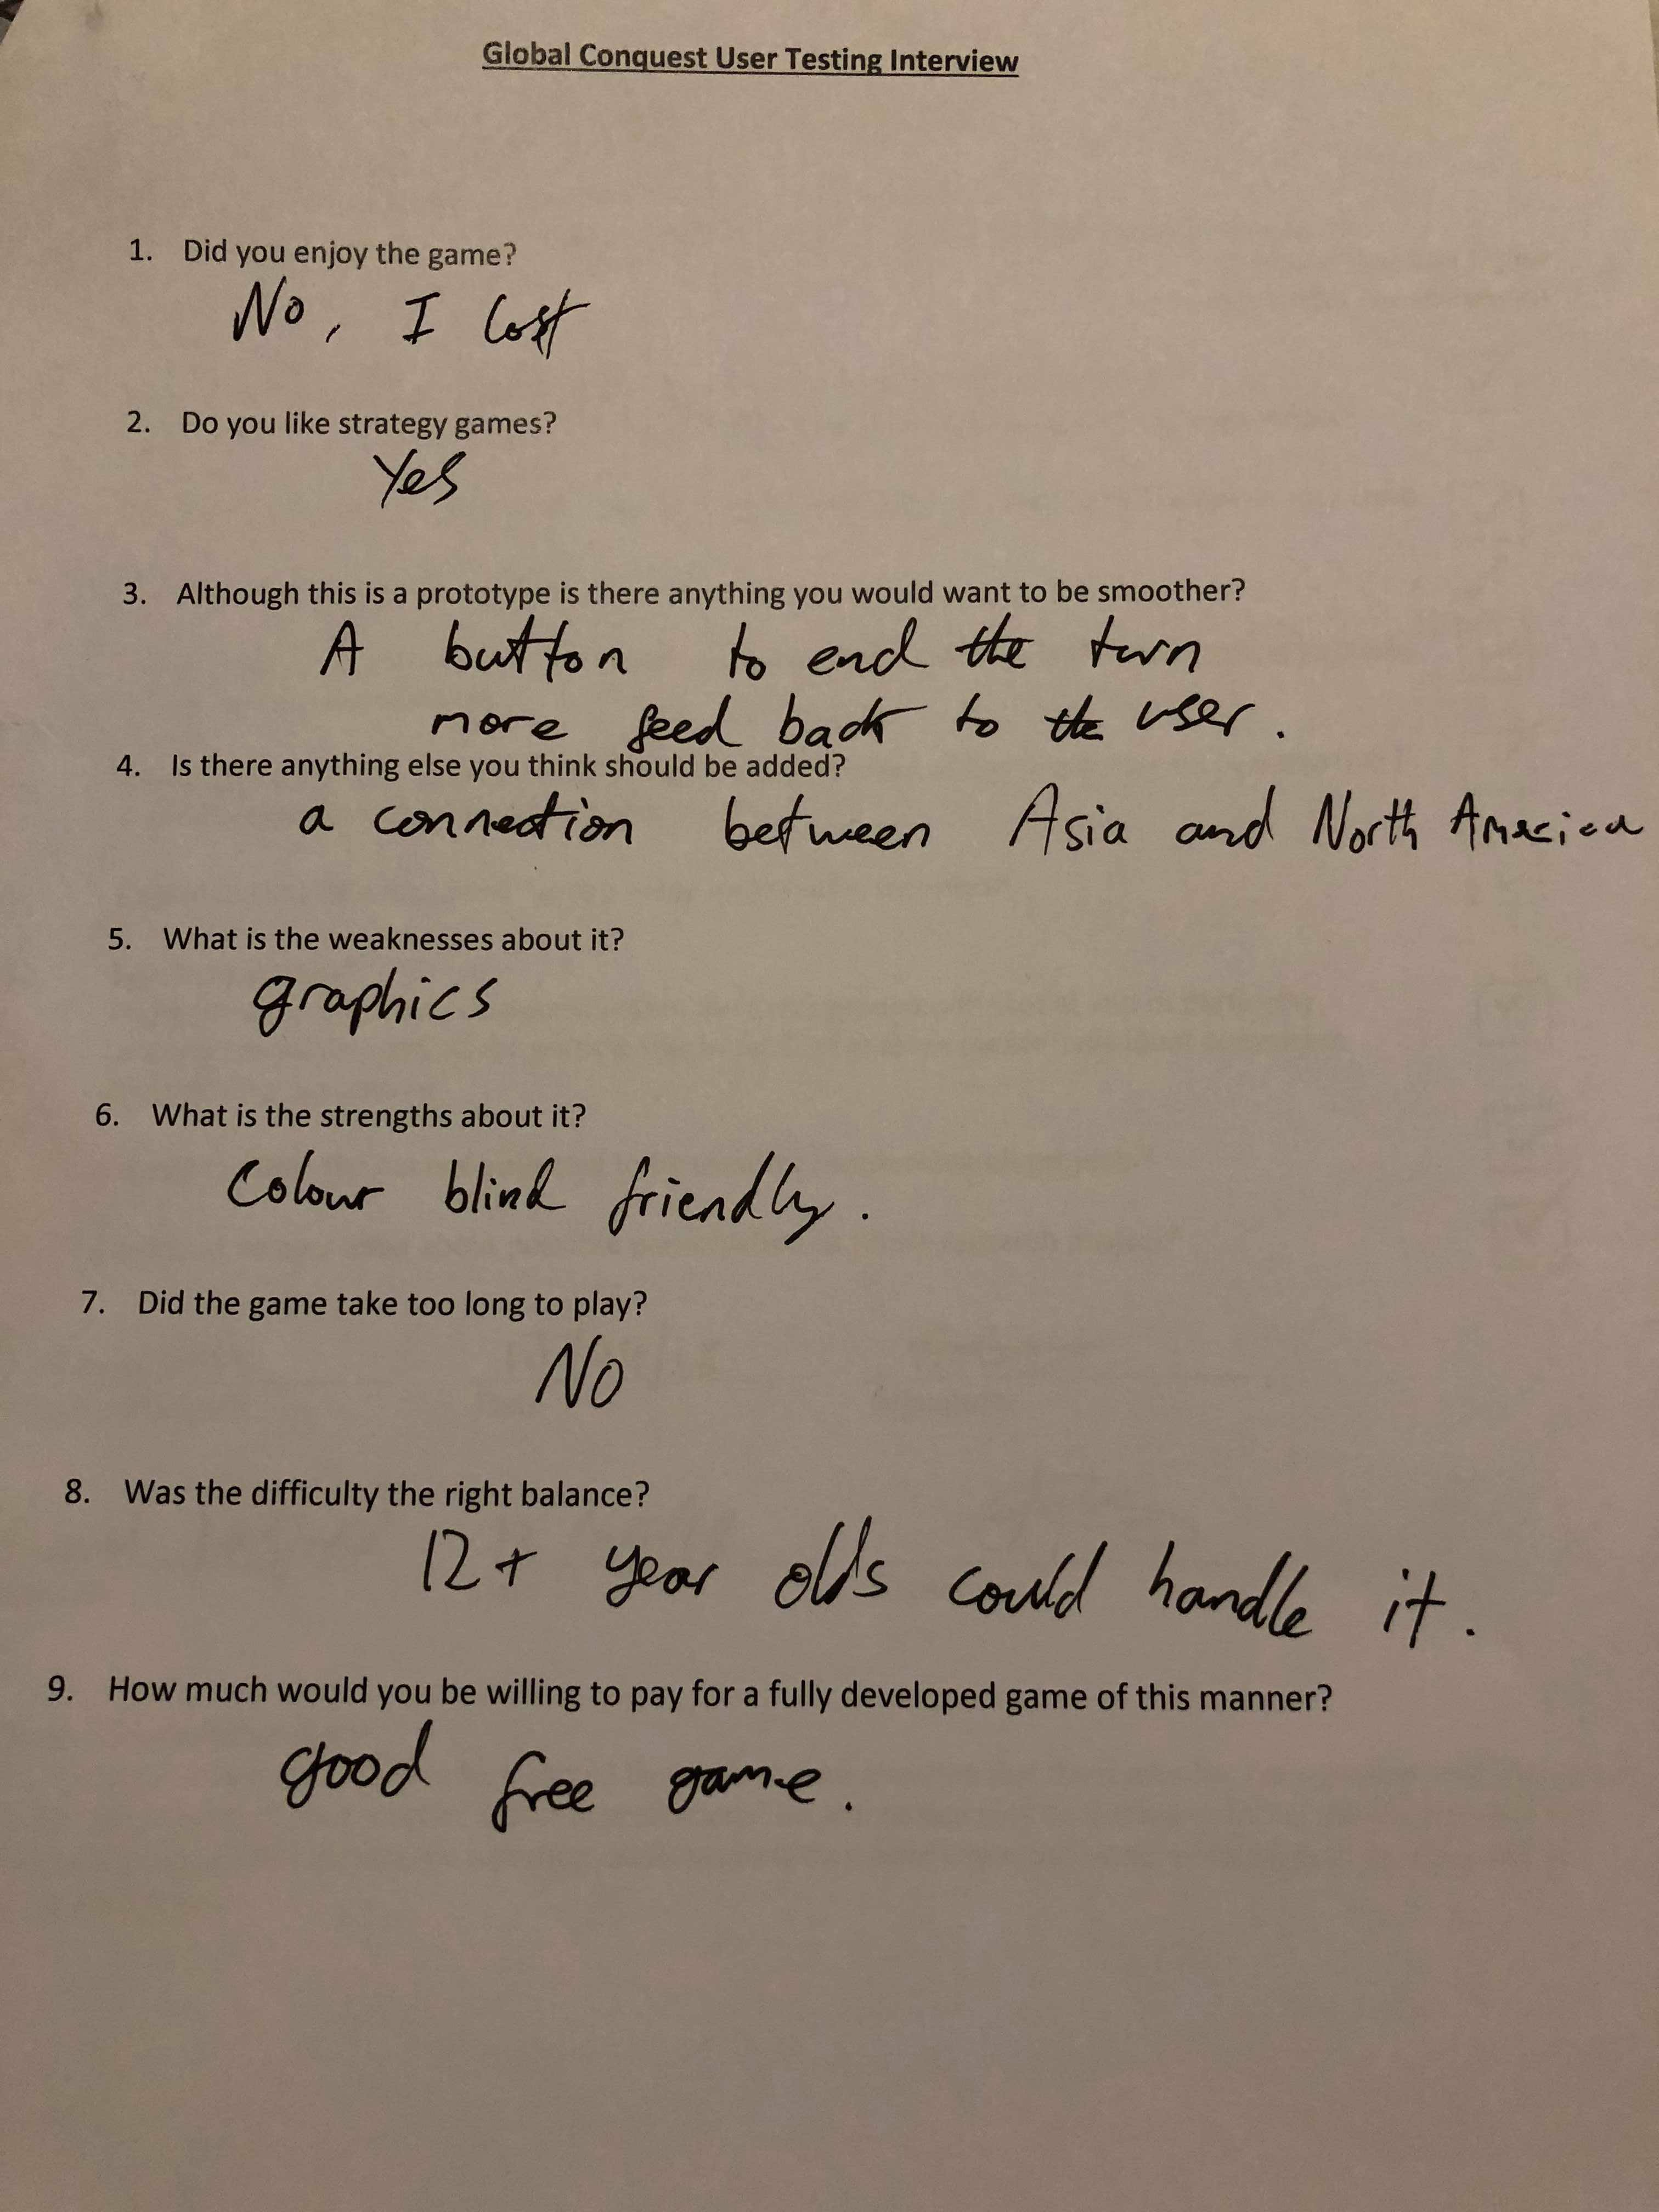 Global Conquest User Testing Interview
1. Did you enjoy the game?
No, I lost
2. Do you like strategy games?
Yes
3. Although this is a prototype is there anything you would want to be smoother?
A button to end the turn
more feed back to the user.
4. Is there anything else you think should be added?
a connection between Asia and North America
5. What is the weaknesses about it?
graphics
6. What is the strengths about it?
Colour blind friendly.
7. Did the game take too long to play?
NO
8. Was the difficulty the right balance?
12+ year olds could handle it.
9. How much would you be willing to pay for a fully developed game of this manner?
good free game.